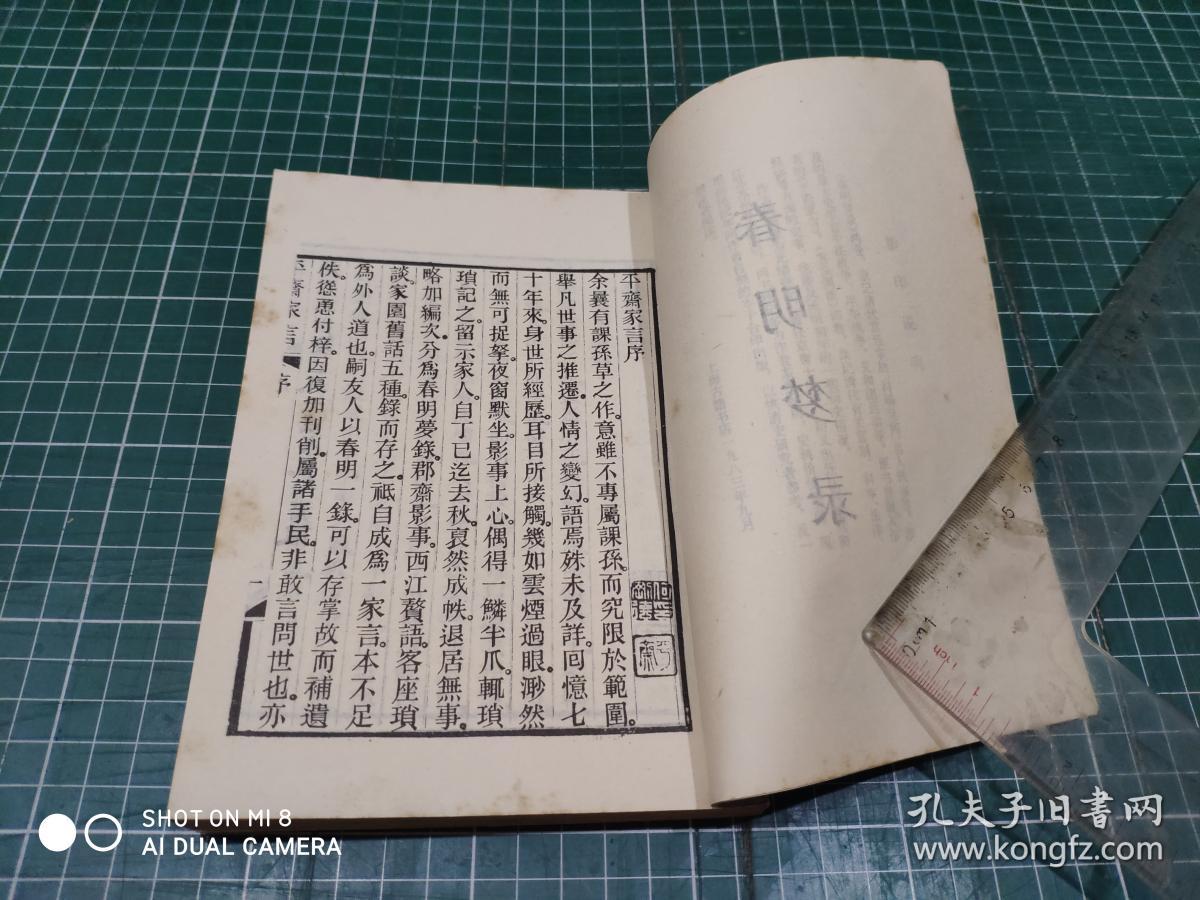 平齋家言序
余曩有課孫草之作。意雖不專屬課孫。而究限於範圍。
舉凡世事之推遷。人情之變幻。語焉殊未及詳。回憶七
十年來。身世所經歷。耳目所接觸。幾如雲煙過眼。渺然
而無可捉拏。夜窗默坐。影事上心。偶得一鱗半爪。輒瑣
瑣記之。留示家人。自丁巳迄去秋。裒然成帙。退居無事。
略加編次。分爲春明夢錄。郡齋影事。西江贅語。客座瑣
談。家園舊話五種。錄而存之。祗自成爲一家言。本不足
爲外人道也。嗣友人以春明一錄。可以存掌故而補遺
佚。慫恿付梓。因復加刊削。屬諸手民。非敢言問世也。亦
平齋家言 序
一
春明梦录
SHOT ON MI 8
AI DUAL CAMERA
孔夫子旧书网
www.kongfz.com